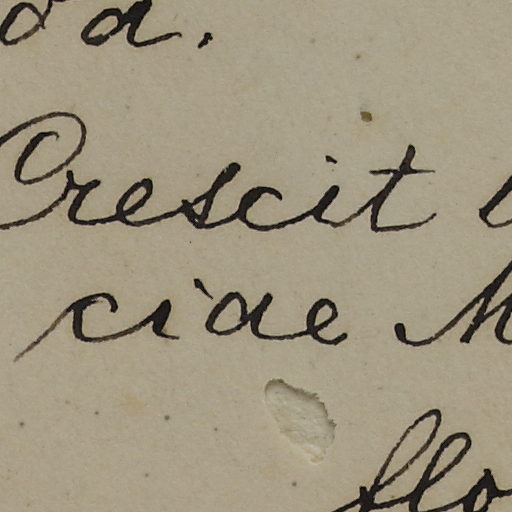 Crescit
ciae M
flo